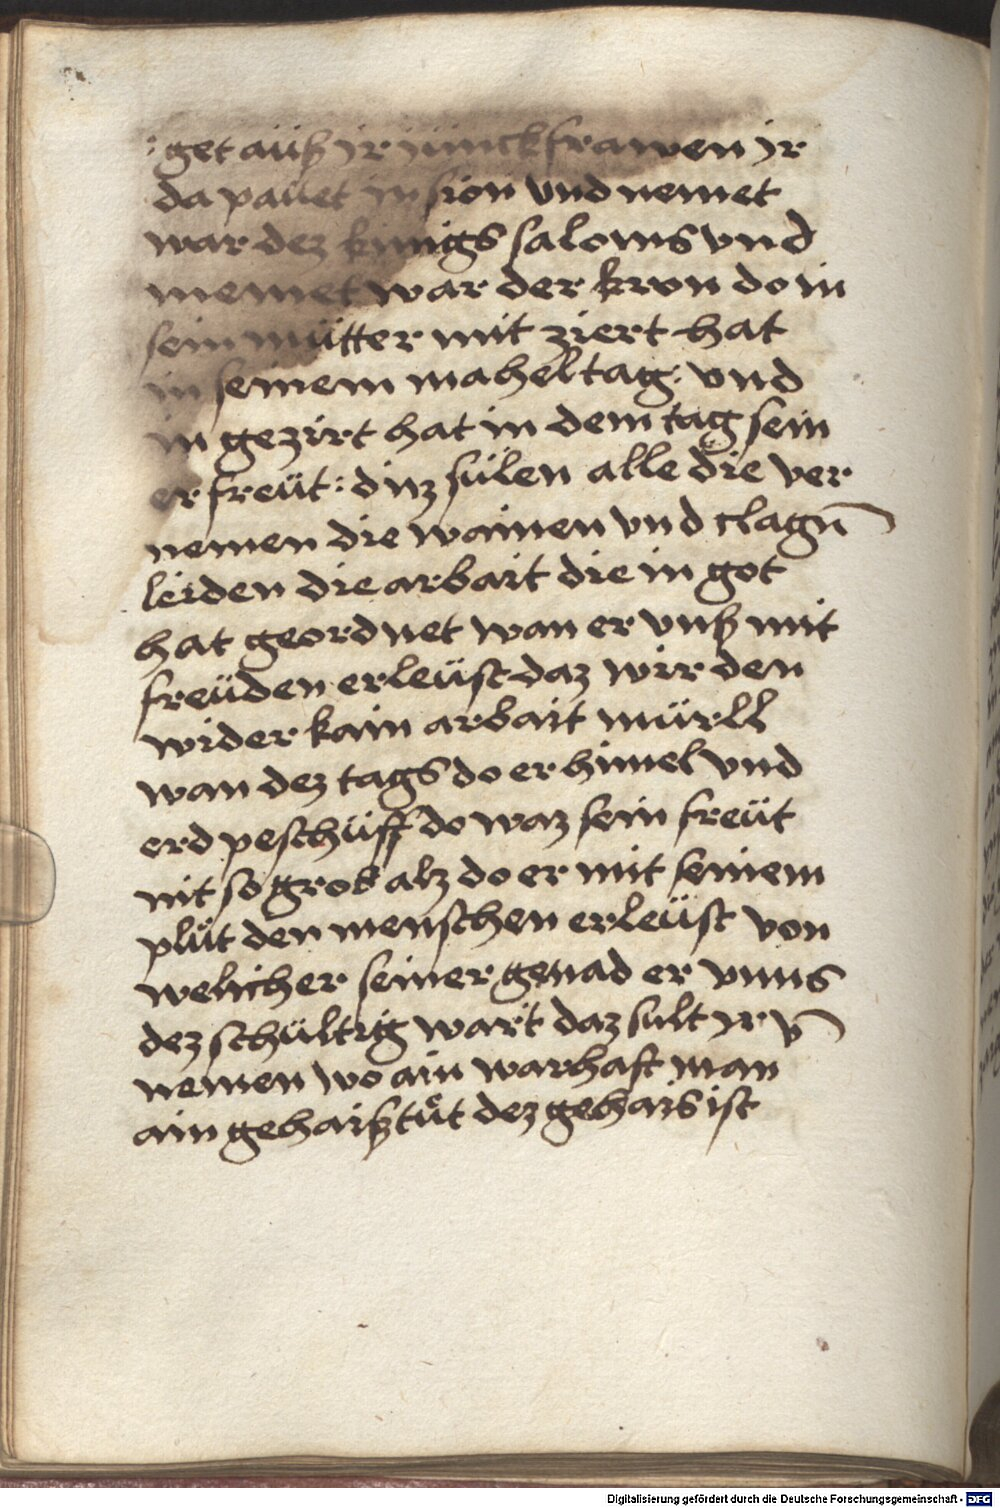 : get aüß jr jünckfrawen jr
da paüet in sion vnd nemet
war dez künigs saloms vnd
nemet war der kron do in
sein mütter mit ziert hat
in seinem maheltag: vnd
in gezirt hat in dem tag sein
er freüt: diz sülen alle die ver
nemen die wainen vnd clagn̄
leiden die arbait die in got
hat geordnet wan er vnß mit
freüden erleüst daz wir den
wider kain arbait mürll
wan dez tags do er himel vnd
erd peschüff do waz sein freüt
nit so gros alz do er mit seinem
plüt den menschen erleüst von
welicher seiner genad er vnns
dez schültrig wart daz sult jr v̄
nemen wo ain warhaft man
ain gehaiß tůt dez gehais ist
Digitalisierung gefördert durch die Deutsche Forschungsgemeinschaft - DFG